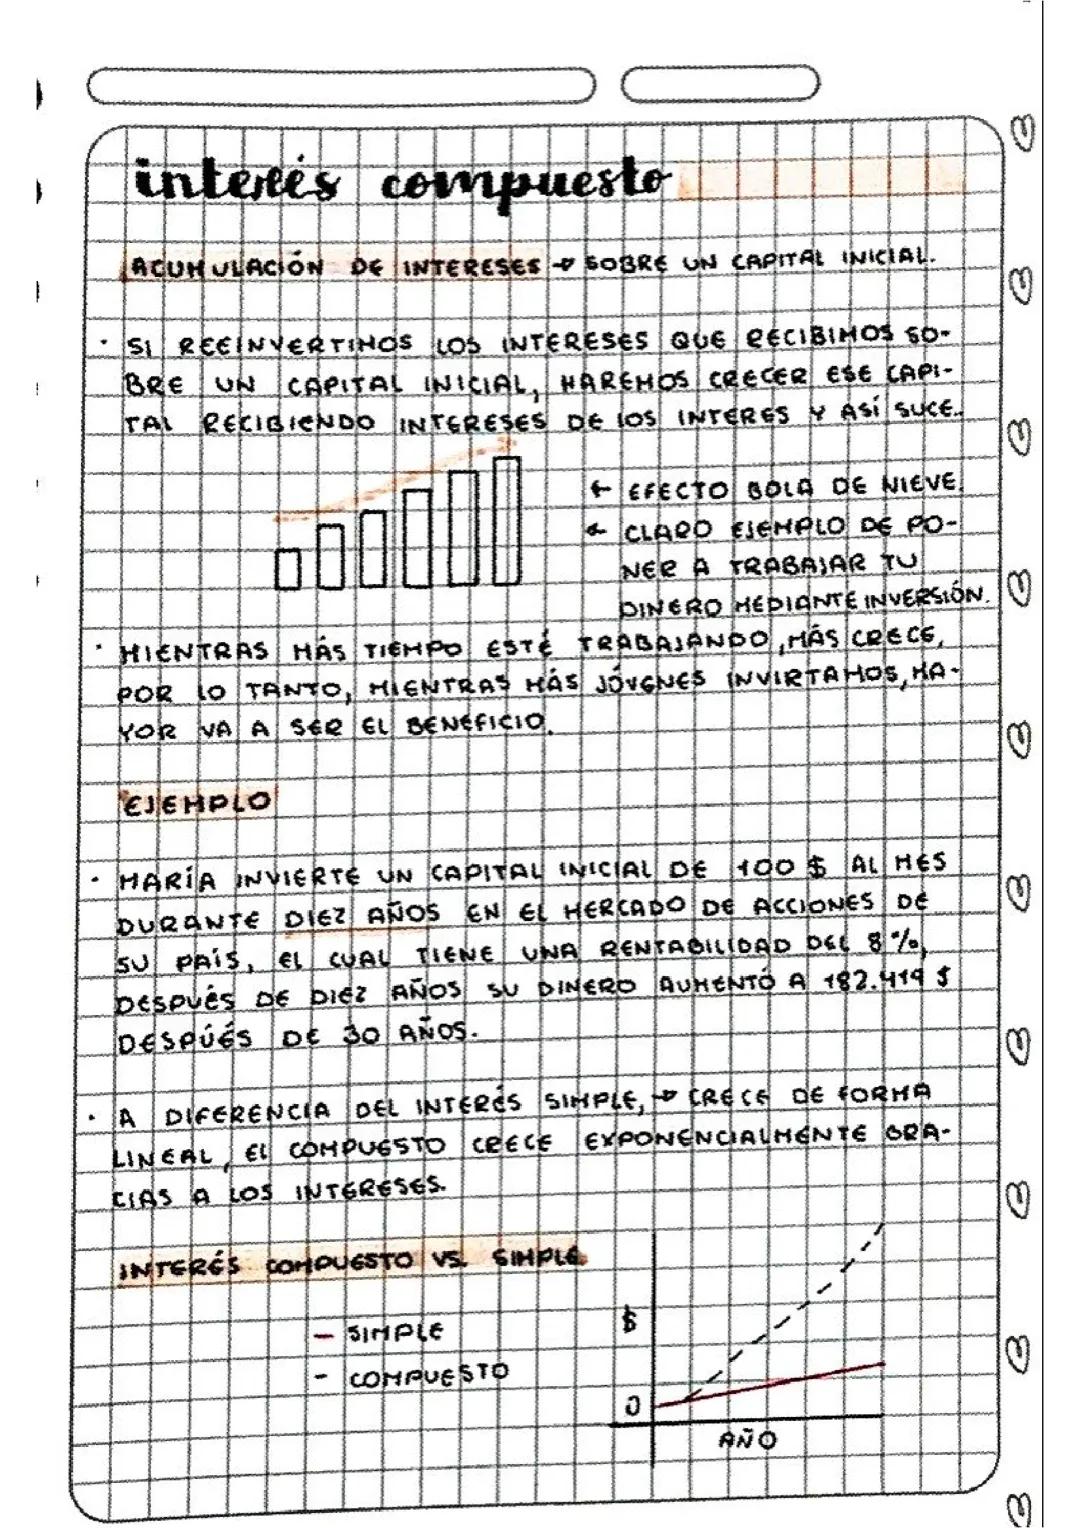 interés compuesto
ACUMULACIÓN DE INTERESES → SOBRE UN CAPITAL INICIAL.
· SI REEINVERTIMOS LOS INTERESES QUE RECIBIMOS SO-
BRE UN CAPITAL INICIAL, HAREMOS CRECER ESE CAPI-
TAL RECIBIENDO INTERESES DE LOS INTERES Y ASÍ SUCE..
← EFECTO BOLA DE NIEVE.
← CLARO EJEMPLO DE PO-
NER A TRABAJAR TU
DINERO MEDIANTE INVERSIÓN.
· MIENTRAS MÁS TIEMPO ESTÉ TRABAJANDO, MÁS CRECE,
POR LO TANTO, MIENTRAS MÁS JÓVENES INVIRTAMOS, MA-
YOR VA A SER EL BENEFICIO.
EJEMPLO
· MARÍA INVIERTE UN CAPITAL INICIAL DE 100 $ AL MES
DURANTE DIEZ AÑOS EN EL MERCADO DE ACCIONES DE
SU PAÍS, EL CUAL TIENE UNA RENTABILIDAD DEL 8 %,
DESPUÉS DE DIEZ AÑOS SU DINERO AUMENTÓ A 182.414 $
DESPÚÉS DE 30 AÑOS.
· A DIFERENCIA DEL INTERÉS SIMPLE, → CRECE DE FORMA
LINEAL, EL COMPUESTO CRECE EXPONENCIALMENTE GRA-
CIAS A LOS INTERESES.
INTERÉS COMPUESTO VS. SIMPLE.
— SIMPLE
- COMPUESTO
$
0
AÑO